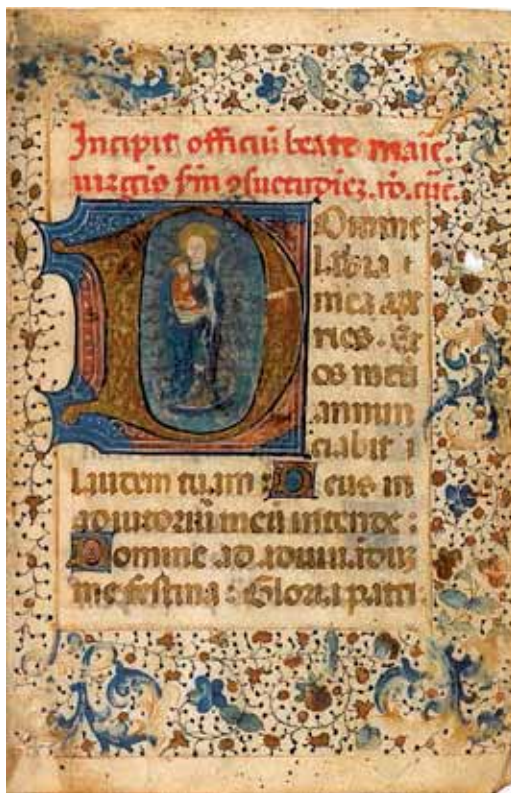 Incipit officiū beate marie.
uirgīs sm ꝯsuetudiēz. rō. cūe.
Domine
labia
mea ape
ries. Et
os meū
annun
ciabit
laudem tuam: Deus in
adiutoriū meū intende:
Domine ad adiuuādū
me festina: Gloria patri